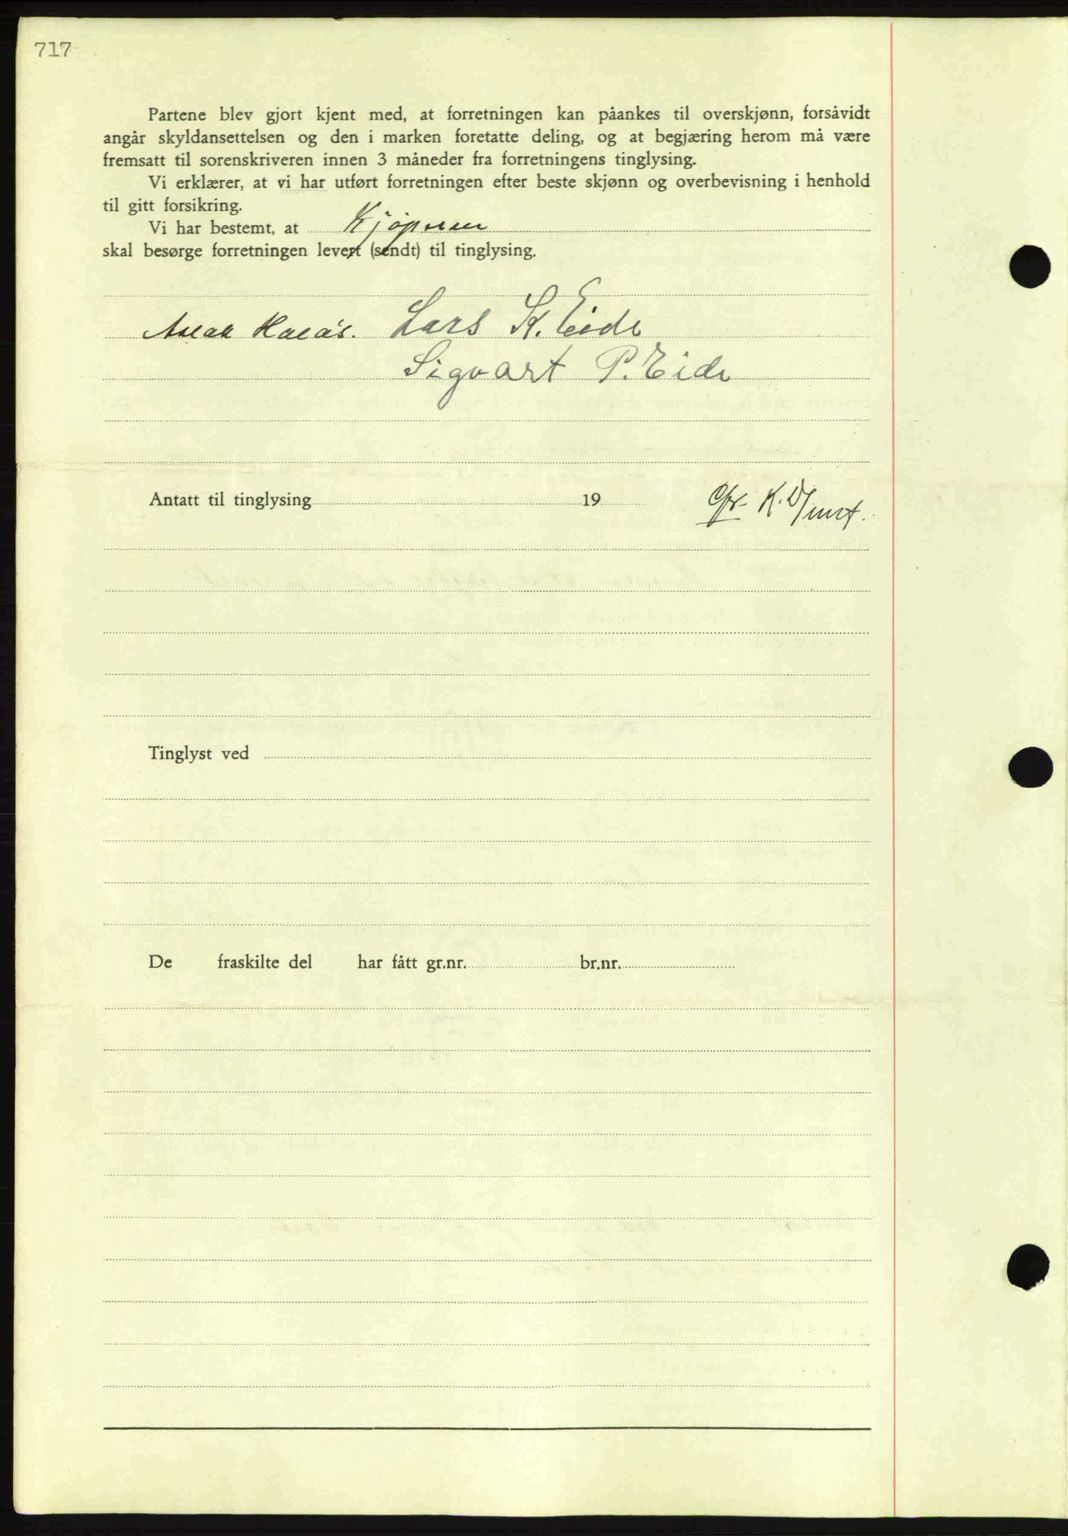 717
Partene blev gjort kjent med, at forretningen kan påankes til overskjønn, forsåvidt
angår skyldansettelsen og den i marken foretatte deling, og at begjæring herom må være
fremsatt til sorenskriveren innen 3 måneder fra forretningens tinglysing.
Vi erklærer, at vi har utført forretningen efter beste skjønn og overbevisning i henhold
til gitt forsikring.
Vi har bestemt, at Kjøperen
skal besørge forretningen levert (sendt) til tinglysing.
Aslak Lars K. Eide
Sigvart P. Eide
Antatt til tinglysing 19
Tinglyst ved
De fraskilte del har fått gr.nr. br.nr.